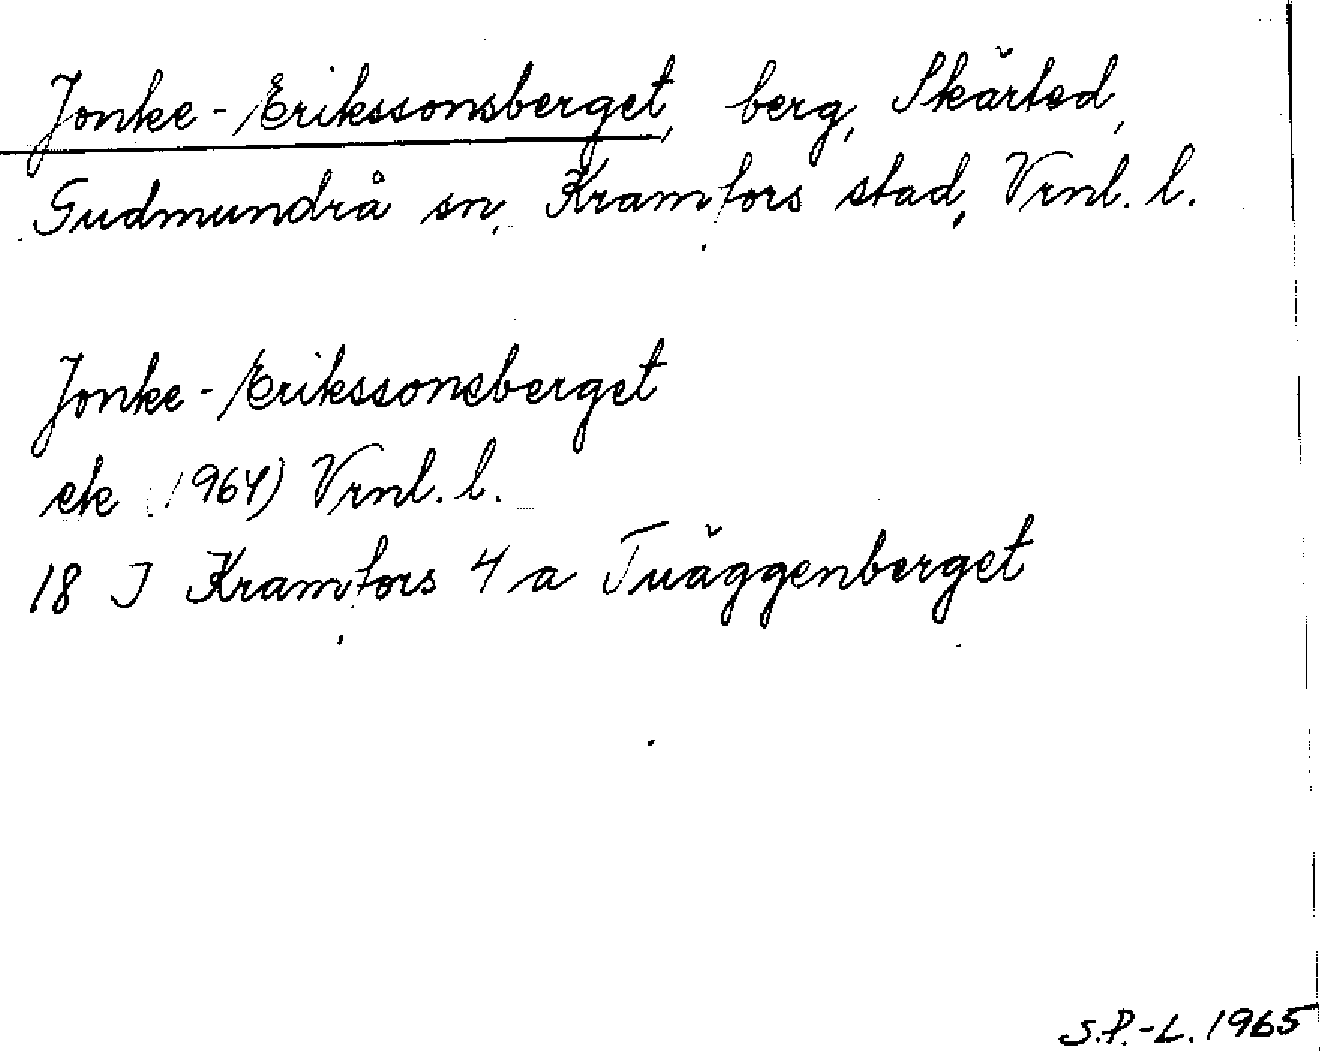 Jonke-Erikssonsberget, berg, Skärted,
Gudmundrå sn, Kramfors stad, Vrnl. l.
Jonke-Erikssonsberget
ek (1964) Vrnl. l.
18 I Kramfors 4 a Tväggenberget
S.P.-L. 1965